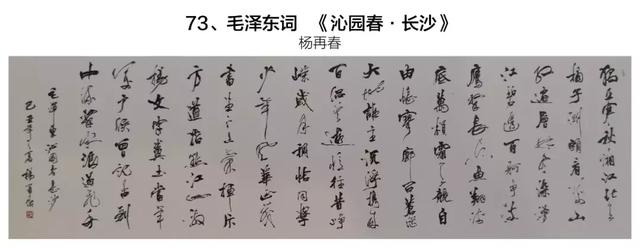 73、毛泽东词 《沁园春·长沙》
杨再春
独立寒秋湘江北去
橘子洲头看万山
红遍层林尽染漫
江碧透百舸争流
鹰击长空鱼翔浅
底万类霜天竞自
由怅寥廓问苍茫
大地谁主沉浮携来
百侣曾游忆往昔峥
嵘岁月稠恰同学
少年风华正茂
书生意气挥斥
方遒指点江山激
扬文字粪土当年
万户侯曾记否到
中流击水浪遏飞舟
毛泽东沁园春长沙
己丑年之夏杨再春